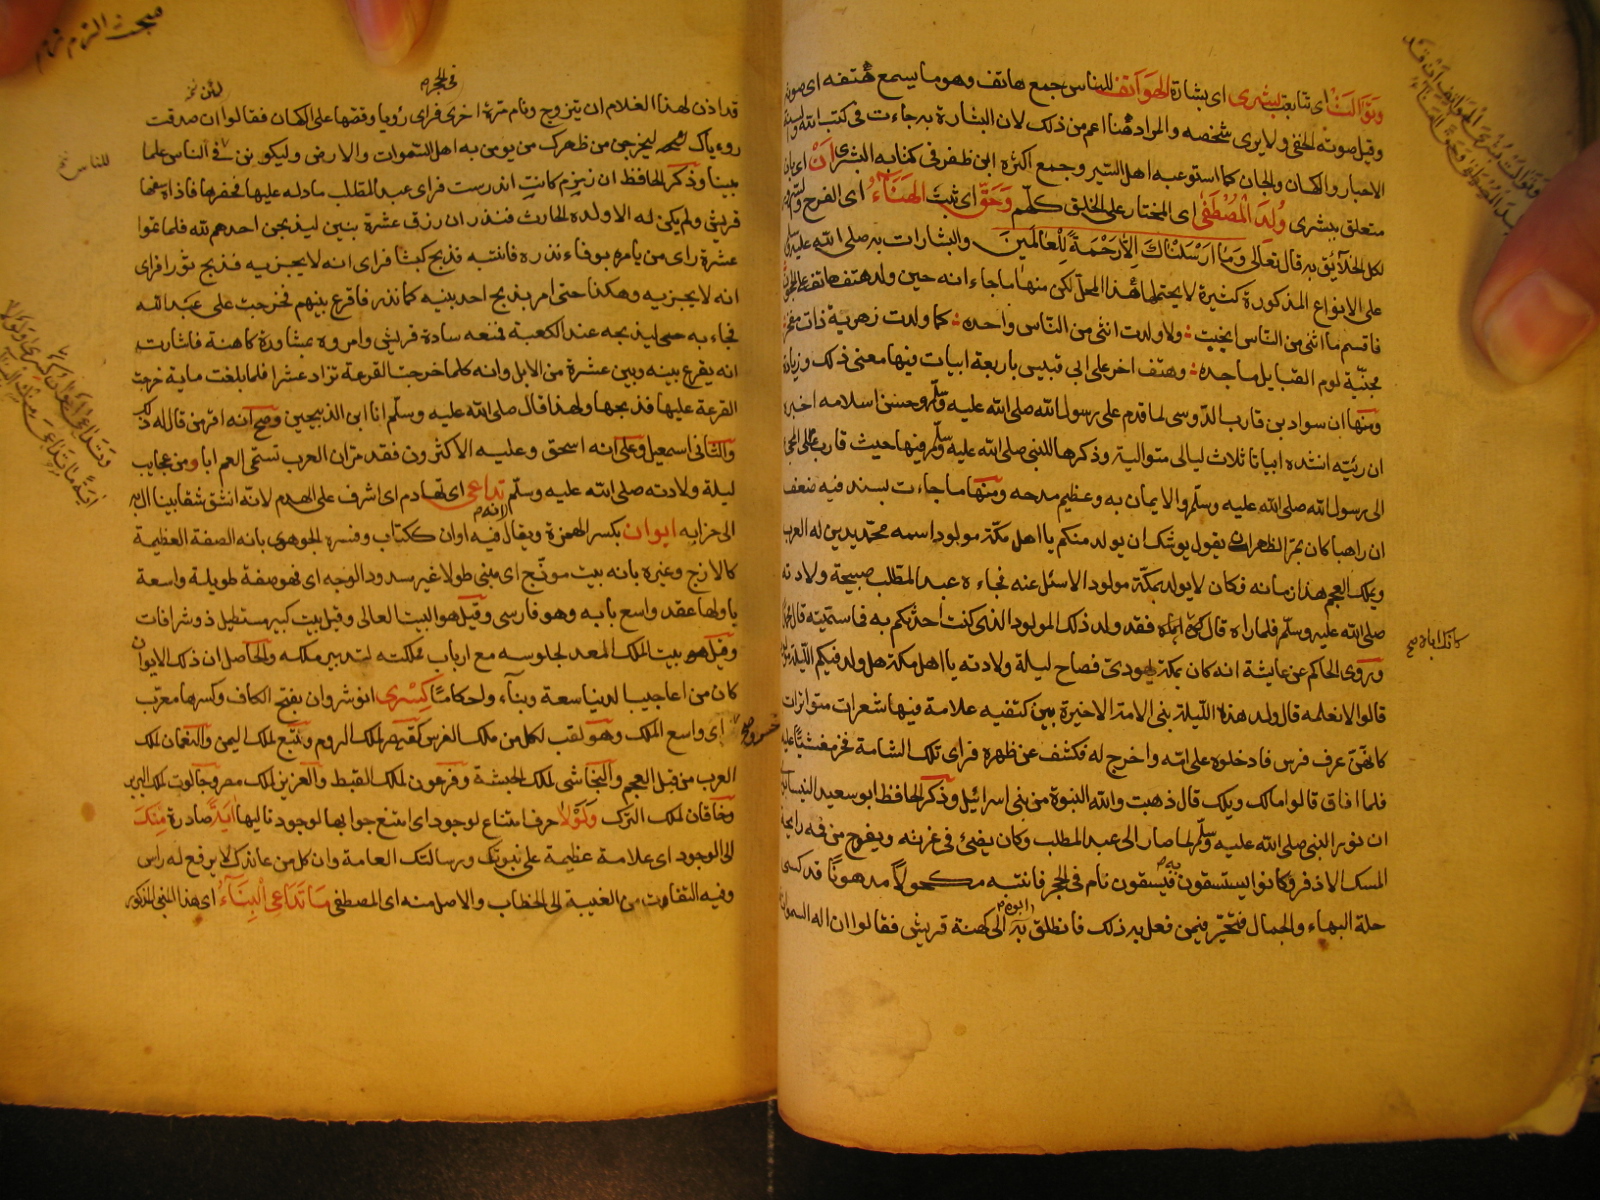 وتوالت اي تتابعت بشرى اي بشارة الهواتف للناس جمع هاتف وهو ما يسمع هتفه اي صوته
وقيل صوته الخفي ولا يرى شخصه والمراد هنا اعم من ذلك لان البشارة به جاءت في كتب الله
الاحبار والكهان والجان كما استوعبه اهل السير وجمع اكثره ابن ظفر في كتابه البشر ان اي بان
متعلق ببشرى ولد المصطفى اي المختار على الخلق كلهم وحق اي ثبت الهناء اي الفرح
لكل الخلائق به قال تعالى وما ارسلناك الا رحمة للعالمين والبشارات به صلى الله عليه
على الانواع المذكورة كثيرة لا يحتملها هذا المحل لكن منها ما جاء انه حين ولد هتف هاتف على الحجون
فاقسم ما انثى من الناس انجبت ولا ولدت انثى من الناس واحده كما ولدت زهرية ذات مفخر
مجنبة لوم القبايل ماجده وهتف اخر على ابي قبيس باربعة ابيات فيها معنى ذلك وزيادة
ومنها ان سواد بن قارب الدوسي لما قدم على رسول الله صلى الله عليه وسلم وحسن اسلامه اخبره
ان رئيه انشده ابياتا ثلاث ليالي متوالية وذكرها للنبي صلى الله عليه وسلم وفيها حيث قارب على المجئ
الى رسول الله صلى الله عليه وسلم والايمان به وعظيم مدحه ومنها ما جاءت بسند فيه ضعف
ان راهبا كان بمر الظهران يقول يوشك ان يولد منكم يا اهل مكة مولود اسمه محمد يدين له العرب
ويملك العجم هذا زمانه فكان لا يولد بمكة مولود الا سئل عنه فجاءه عبد المطلب صبيحة ولادته
صلى الله عليه وسلم فلما راه قال فقد ولد ذلك المولود الذي كنت احدثكم به فما سميته قال محمد
وروى الحاكم عن عايشة انه كان بمكة يهودي فصاح ليلة ولادته يا اهل مكة هل ولد فيكم الليلة
قالوا لا نعلمه قال ولد هذه الليلة نبي الامة الاخيرة بين كتفيه علامة فيها شعرات متواترات
كانهن عرف فرس فادخلوه على امه واخرج له فكشف عن ظهره فراى تلك الشامة فخر مغشيا عليه
فلما افاق قالوا مالك ويلك قال ذهبت والله النبوة من بني اسرائيل وذكر الحافظ ابو سعيد النيسابوري
ان نور النبي صلى الله عليه وسلم لما صار الى عبد المطلب وكان يضئ في غرته ويفوح من فمه رايحة
المسك الاذفر وكانوا يستسقون به فيسقون نام في الحجر فانتبه مكحولا مدهونا قد كسي
حلة البهاء والجمال فتحير فيمن فعل به ذلك فانطلق به ابوه الى كهنة قريش فقالوا ان اله السموات
كانك اباه صح
في الحجر
قد اذن لهذا الغلام ان يتزوج ونام مرة اخرى فراى رؤيا وقصها على الكهان فقالوا ان صدقت
روءياك ليخرجن من ظهرك من يومن به اهل السموات والارض وليكونن في الناس علما
مبينا وذكر الحافظ ان زمزم كانت اندرست فراى عبد المطلب ما دله عليها فحفرها فاذاه سفها
قريش ولم يكن له الا ولده الحارث فنذر ان رزق عشرة بنين ليذبحن احدهم لله فلما تموا
عشرة راى من يامره بوفاء نذره فانتبه فذبح كبشا فراى انه لا يجزيه فذبح ثورا فراى
انه لا يجزيه وهكذا حتى امر بذبح احد بنيه كما نذر فاقرع بينهم فخرجت على عبد الله
فجاء به ليذبحه عند الكعبة فمنعه سادة قريش وامروه بمشاورة كاهنة فاشارت
انه يقرع بينه وبين عشرة من الابل وانه كلما خرجت القرعة تزاد عشرا فلما بلغت ماية خرجت
القرعة عليها فذبحها ولهذا قال صلى الله عليه وسلم انا ابن الذبيحين وصح انه اقر من قال له ذلك
والثاني اسمعيل وعلى انه اسحق وعليه الاكثرون فقد مر ان العرب تسمي العم ابا ومن عجايب
ليلة ولادته صلى الله عليه وسلم تداعى اي تهادم اي اشرف على الهدم لانه انشق شقا بينا
الى خرابه ايوان بكسر الهمزة ويقال فيه اوان ككتاب وفسره الجوهري بانه الصفة العظيمة
كالازج وغيره بانه بيت مونج اي مبني طولا غير سدود الوجه اي فهو صفة طويلة واسعة
باولها عقد واسع بابه وهو فارسي وقيل هو البيت العالي وقيل بيت كبير مستطيل ذو شرافات
وقيل هو بيت الملك المعد لجلوسه مع ارباب مملكته لتدبير ملكه والحاصل ان ذلك الايوان
كان من اعاجيب الدنيا سعة وبناء واحكاما كسرى انوشروان بفتح الكاف وكسرها معرب
خسرو صح اي واسع الملك وهو لقب لكل من ملك الفرس كقيصر لملك الروم وتبع لملك اليمن والنعمان لملك
العرب من قبل العجم والنجاشي لملك الحبشة وفرعون لملك القبط والعزيز لملك مصر وجالوت لملك البربر
وخاقان لملك الترك ولولا حرف امتناع لوجود اي امتنع جوابها لوجود تاليها اية صادرة منك
الى الوجود اي علامة عظيمة على نبوتك ورسالتك العامة وان كل من عاندك لا يرفع له راس
وفيه التفات من الغيبة الى الخطاب والاصل منه اي المصطفى ما تداعى البناء اي هذا البنى المذكور